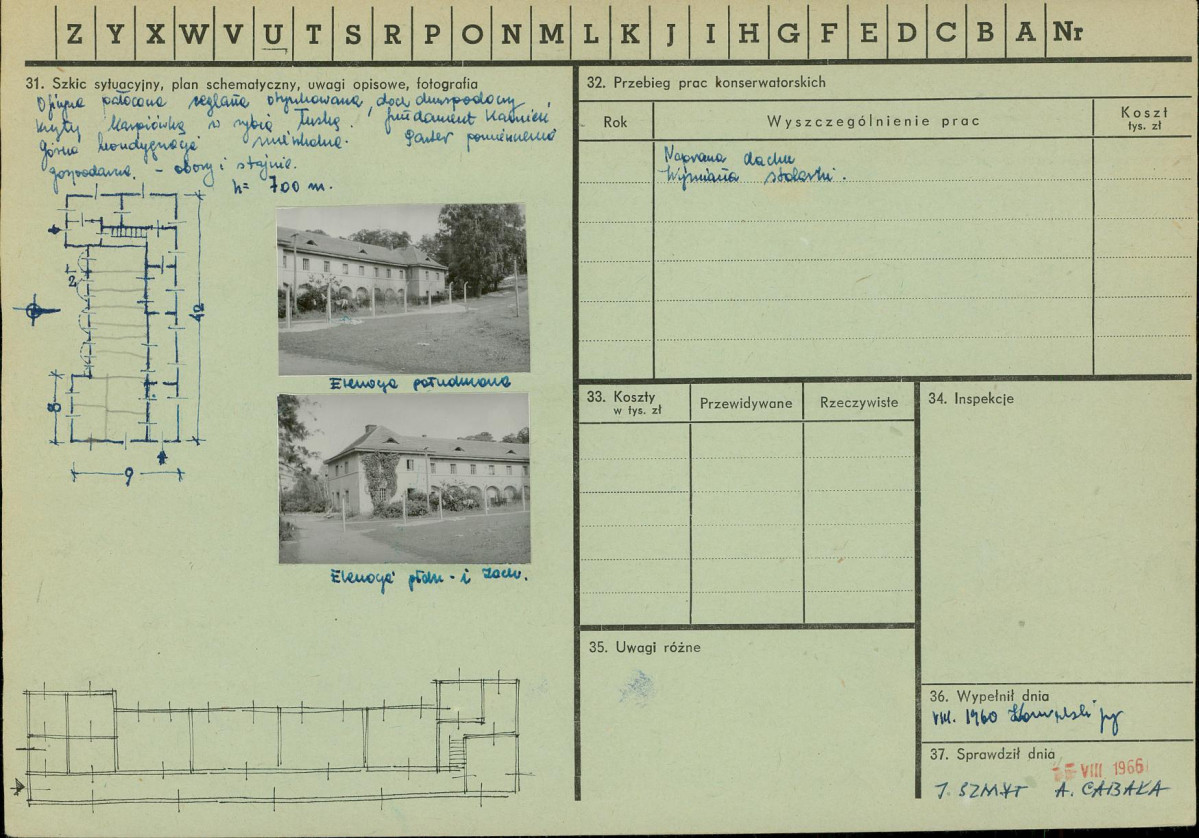 Z Y X W V U T S R P O N M L K J I H G F E D C B A Nr
31. Szkic sytuacyjny, plan schematyczny, uwagi opisowe, fotografia
Oficyna pałacowa ceglana otynkowana, dach dwuspadowy
kryty karpiówką w rybią łuskę. fundament kamień,
Górna kondygnacja mieszkalna. Parter pomieszczenia
gospodarcze. - obory i stajnie.
h = 700 m.
2
42
8
9
Elewacja południowa
Elewacja płdn - i zach.
32. Przebieg prac konserwatorskich
Rok
Wyszczególnienie prac
Koszt
tys. zł
Naprawa dachu
Wymiana stolarki.
33. Koszty
w tys. zł
Przewidywane
Rzeczywiste
34. Inspekcje
35. Uwagi różne
36. Wypełnił dnia
VIII. 1960
37. Sprawdził dnia
VIII 1966
J. SZMYT A. CABAŁA